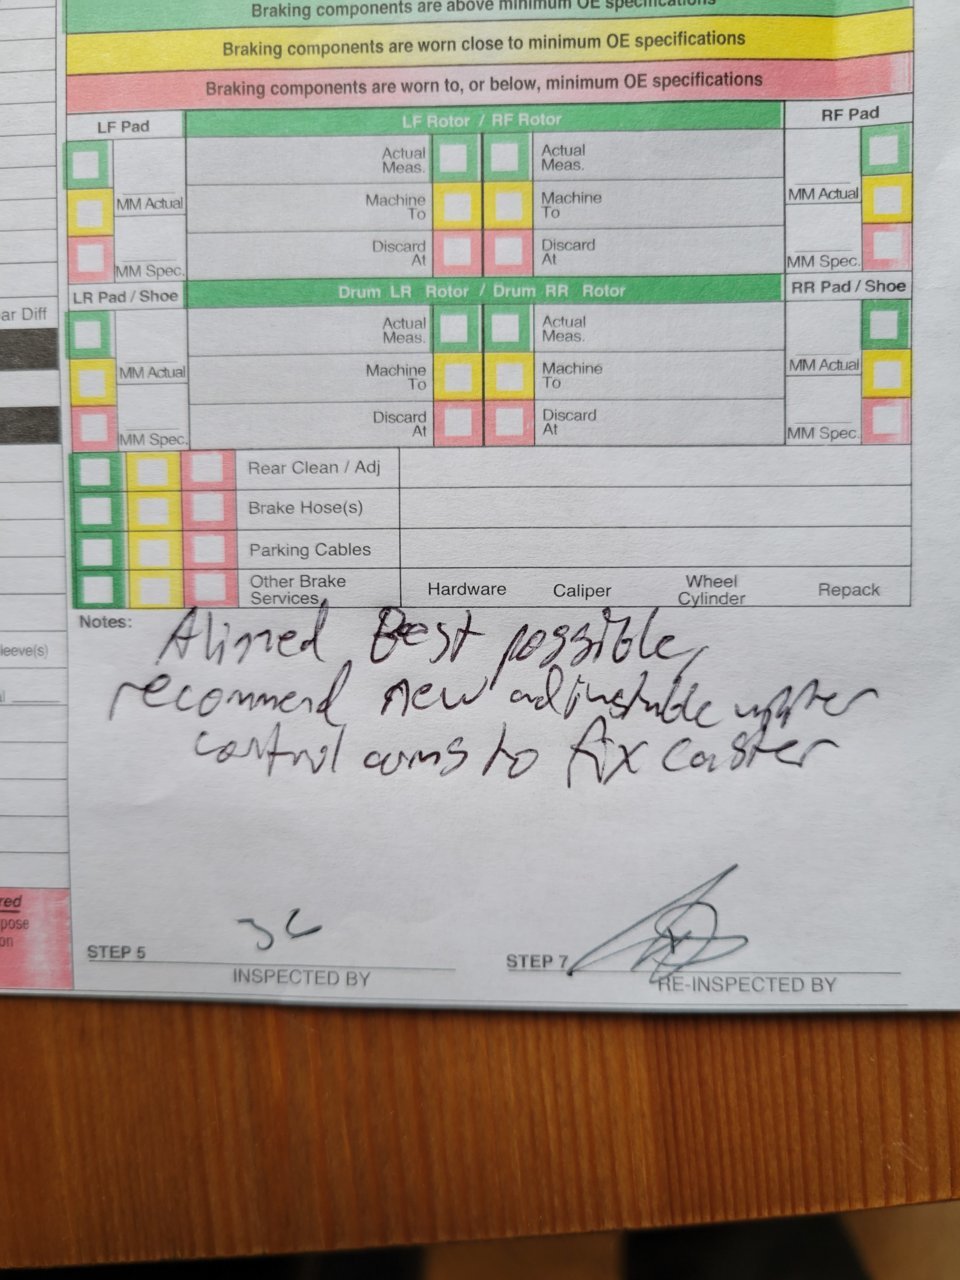 Braking components are above minimum OE specifications
Braking components are worn close to minimum OE specifications
Braking components are worn to, or below, minimum OE specifications
LF Pad
LF Rotor / RF Rotor
RF Pad
Actual Meas.
Actual Meas.
MM Actual
Machine To
Machine To
MM Actual
Discard At
Discard At
MM Spec.
MM Spec.
ar Diff
LR Pad / Shoe
Drum LR Rotor / Drum RR Rotor
RR Pad / Shoe
Actual Meas.
Actual Meas.
MM Actual
Machine To
Machine To
MM Actual
Discard At
Discard At
MM Spec.
MM Spec.
Rear Clean / Adj
Brake Hose(s)
Parking Cables
Other Brake Services
Hardware
Caliper
Wheel Cylinder
Repack
leeve(s)
Notes:
Aligned Best possible,
recommend new adjustable upper
control arms to fix caster
red
pose
on
STEP 5
INSPECTED BY
STEP 7
RE-INSPECTED BY